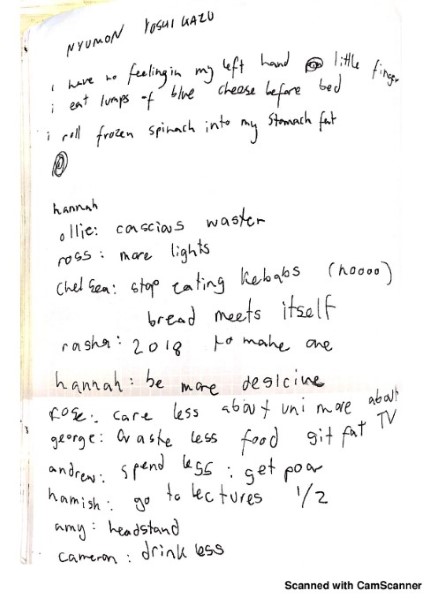 NYUMON YOSHIKAZU
i have no feeling in my left hand little finger
i eat lumps of blue cheese before bed
i roll frozen spinach into my stomach fat
hannah
ollie: conscious waster
ross: more lights
chelsea: stop eating kebabs (noooo)
bread meets itself
rasha: 2018 to make one
hannah: be more
rose: care less about uni more about TV
george: waste less food git fat
andrew: spend less : get poor
hamish: go to lectures 1/2
amy: headstand
cameron: drink less
Scanned with CamScanner